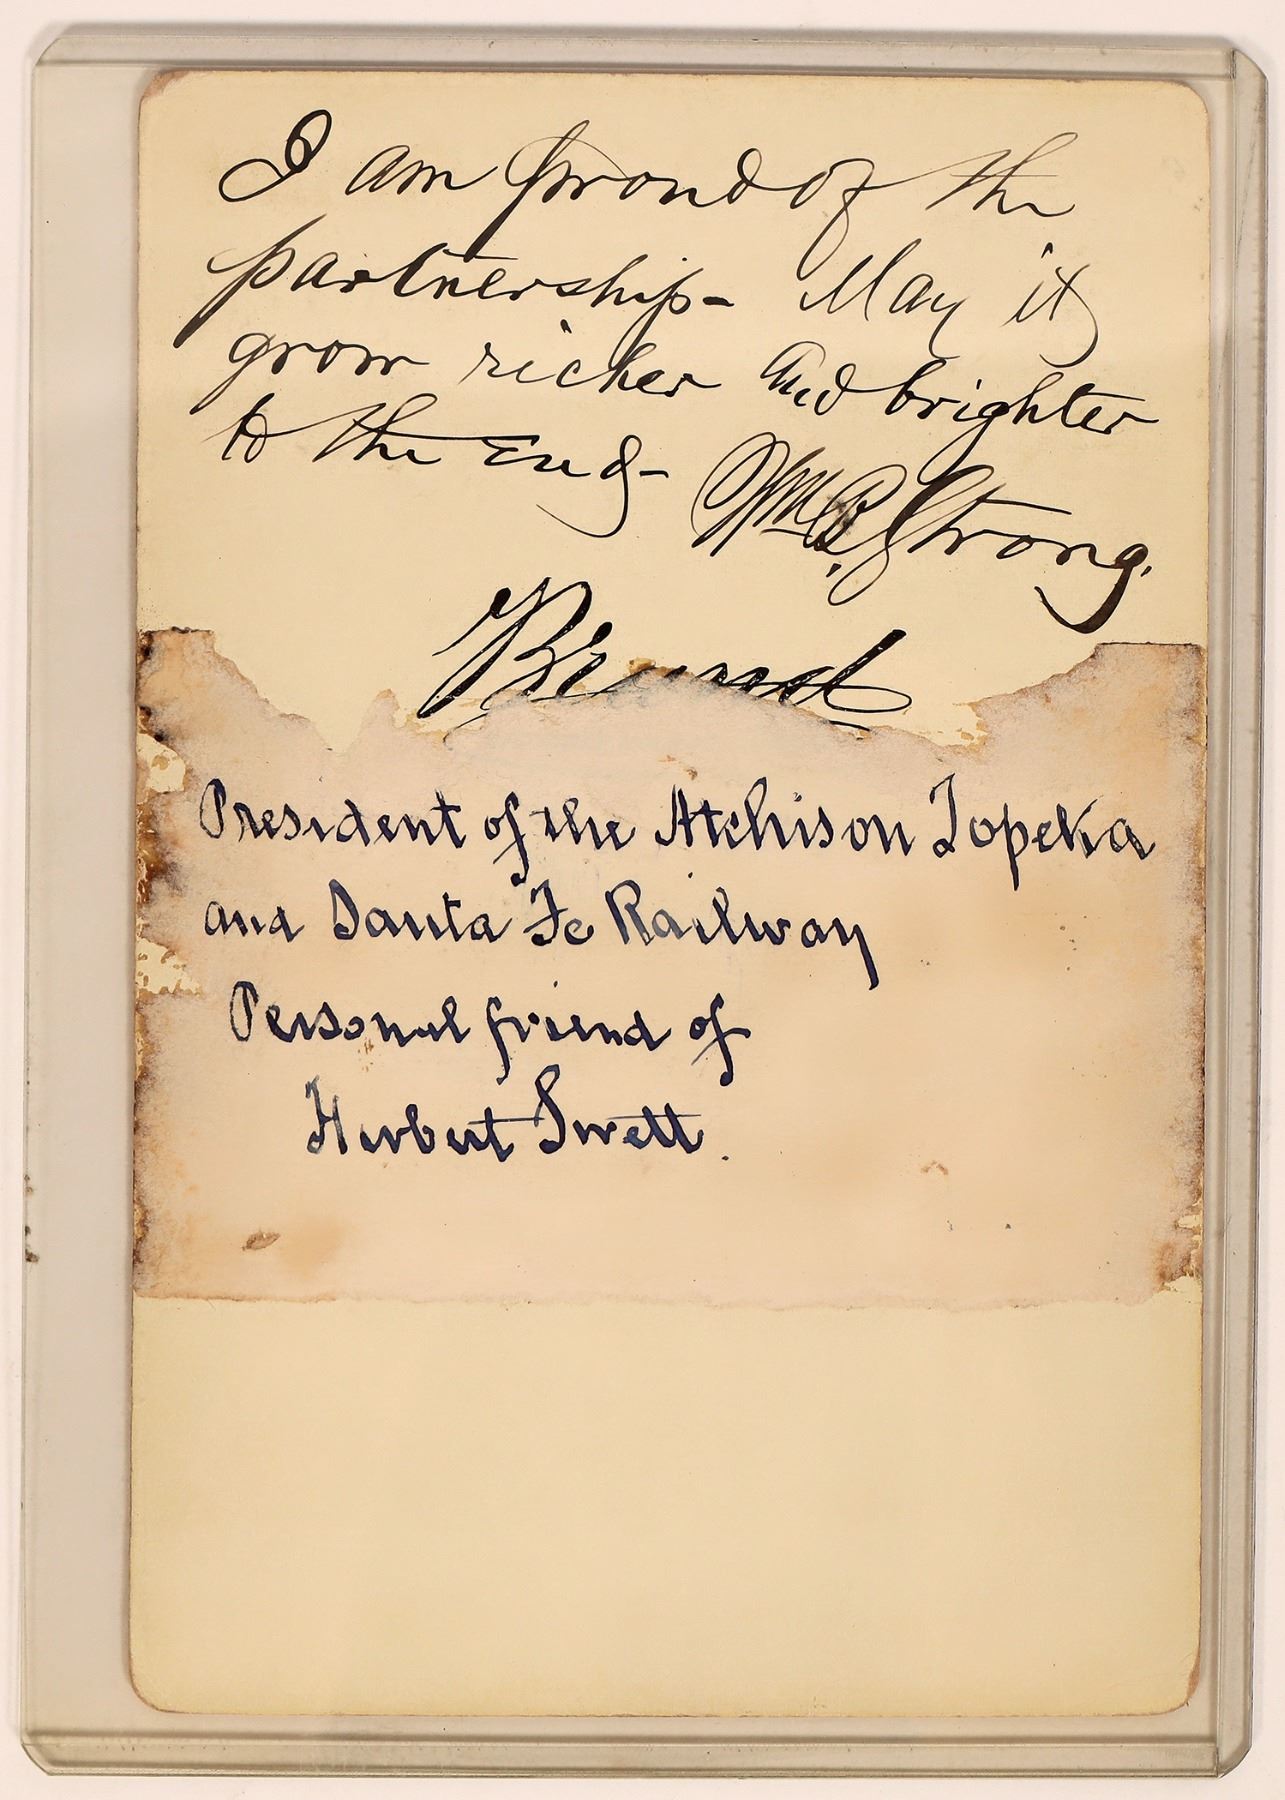 I am proud of the
partnership- May it
grow richer and brighter
to the End-
Wm. B. Strong.
President of the Atchison Topeka
and Santa Fe Railway
Personal friend of
Herbert Swett.